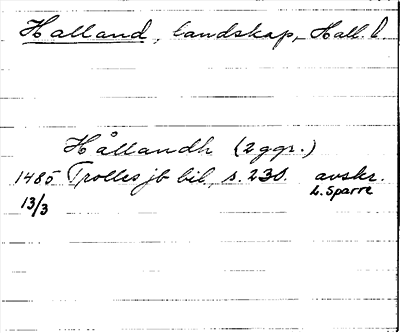 Halland, landskap, Hall. l.
Hållandh (2 ggr.)
1485 Trolles jb bil, s. 230. avskr.
13/3 L. Sparre